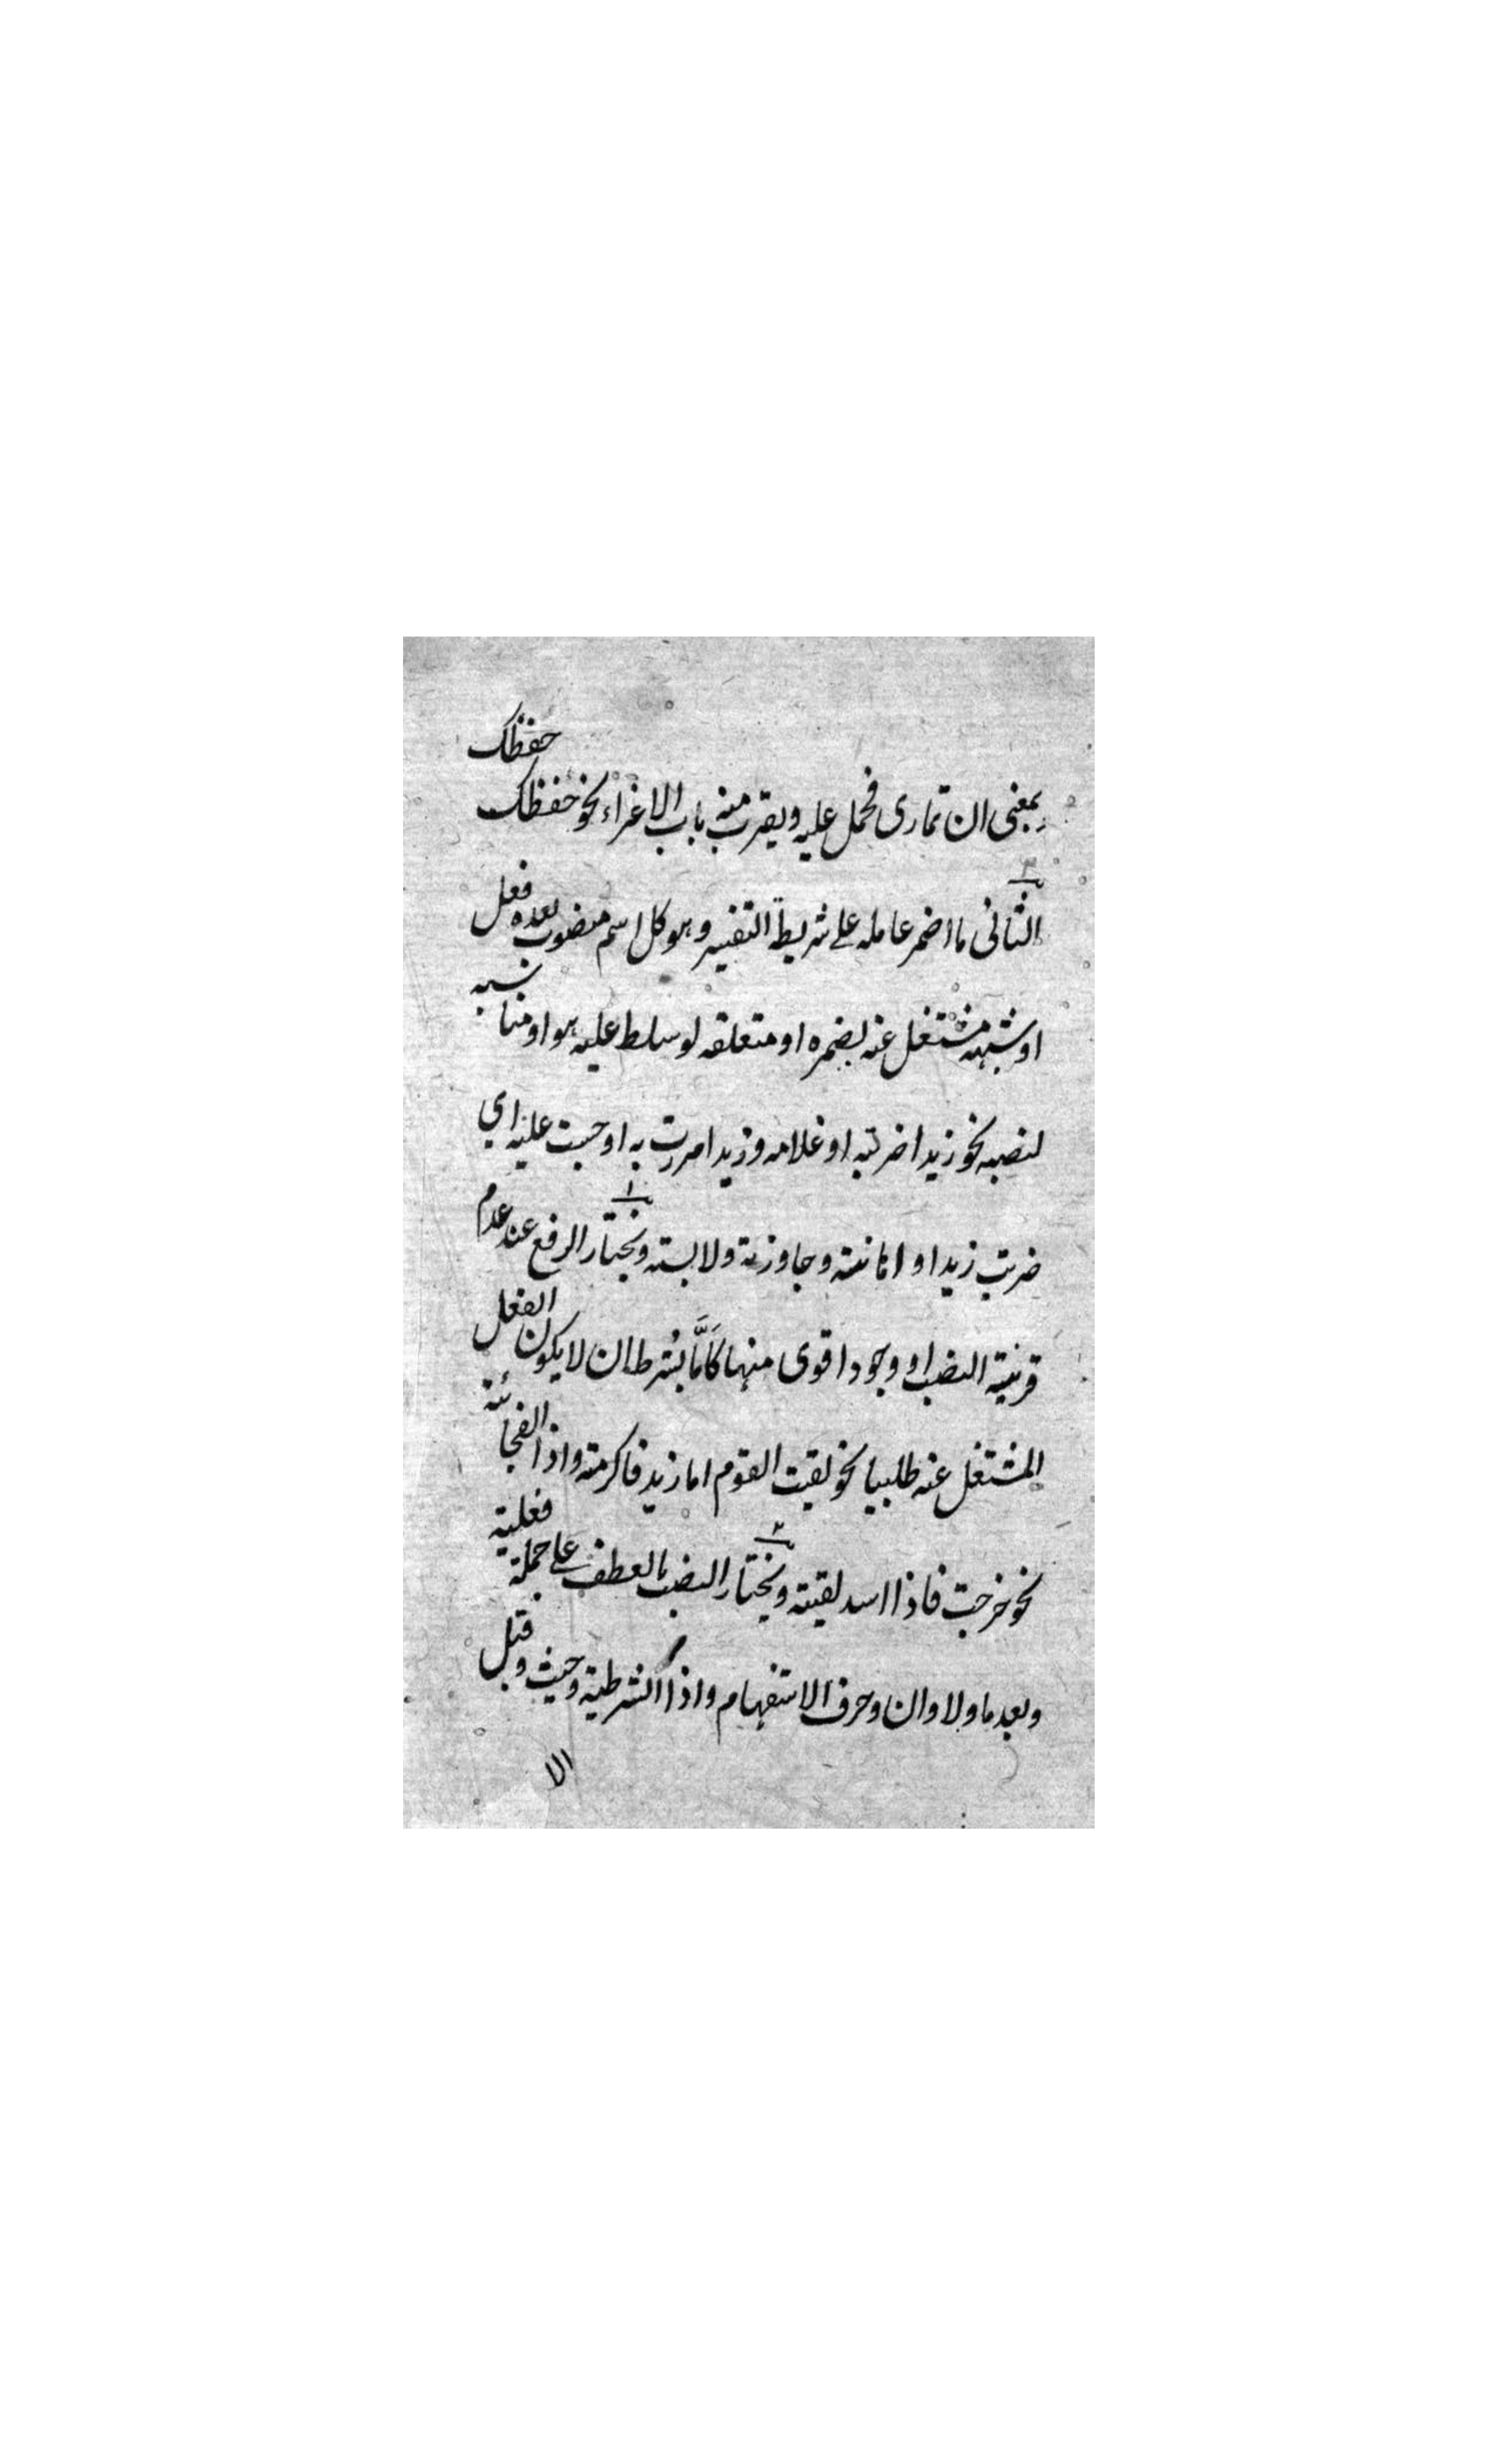 بمعنى ان تمارى فحمل عليه ويقرب منه باب الاغراء نحو حفظك حفظك
الثانى ما اضمر عامله على شريطة التفسير وهو كل اسم منصوب بعده فعل
او شبهه مشتغل عنه بضمره او متعلقه لو سلط عليه هو او مناسبه
لنصبه نحو زيدا ضربته او غلامه وزيدا مررت به او حبست عليه اي
ضربت زيدا او اهانته وجاوزته ولابسته ويختار الرفع عند عدم
قرينة النصب او وجود اقوى منها كَاَمَّا بشرط ان لا يكون الفعل
المشتغل عنه طلبيا نحو لقيت القوم اما زيد فاكرمته واذا الفجائية
نحو خرجت فاذا اسد لقيته ويختار النصب بالعطف على جملة فعلية
وبعد ما ولا وان وحرف الاستفهام واذا الشرطية وحيث وقبل
الا